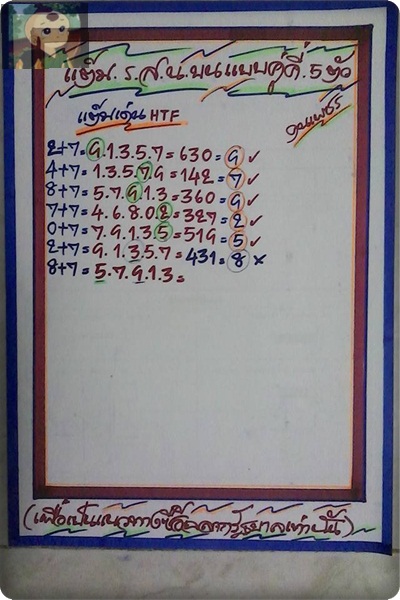 แต้ม.ร.ส.น.บนแบบคู่คี่.5ตัว
แต้มเด่น HTF
ขุนเพชร
2+7=9.1.3.5.7=630=9✓
4+7=1.3.5.7.9=142=7✓
8+7=5.7.9.1.3=360=9✓
7+7=4.6.8.0.2=327=2✓
0+7=7.9.1.3.5=519=5✓
2+7=9.1.3.5.7=431=8×
8+7=5.7.9.1.3=
(เพื่อเป็นแนวทางซื้อสลากรัฐบาลเท่านั้น)